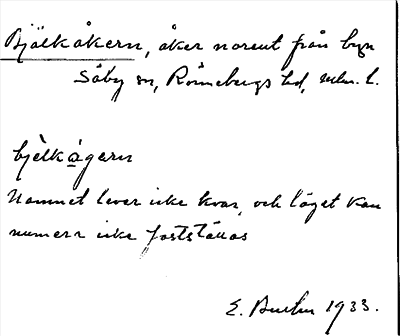 Bjälkåkern, åker norrut från byn
Säby sn, Rönnebergs hd, Mlm. l.
bjèlkågern
Namnet lever icke kvar, och läget kan
numera icke fastställas
E. 1933.